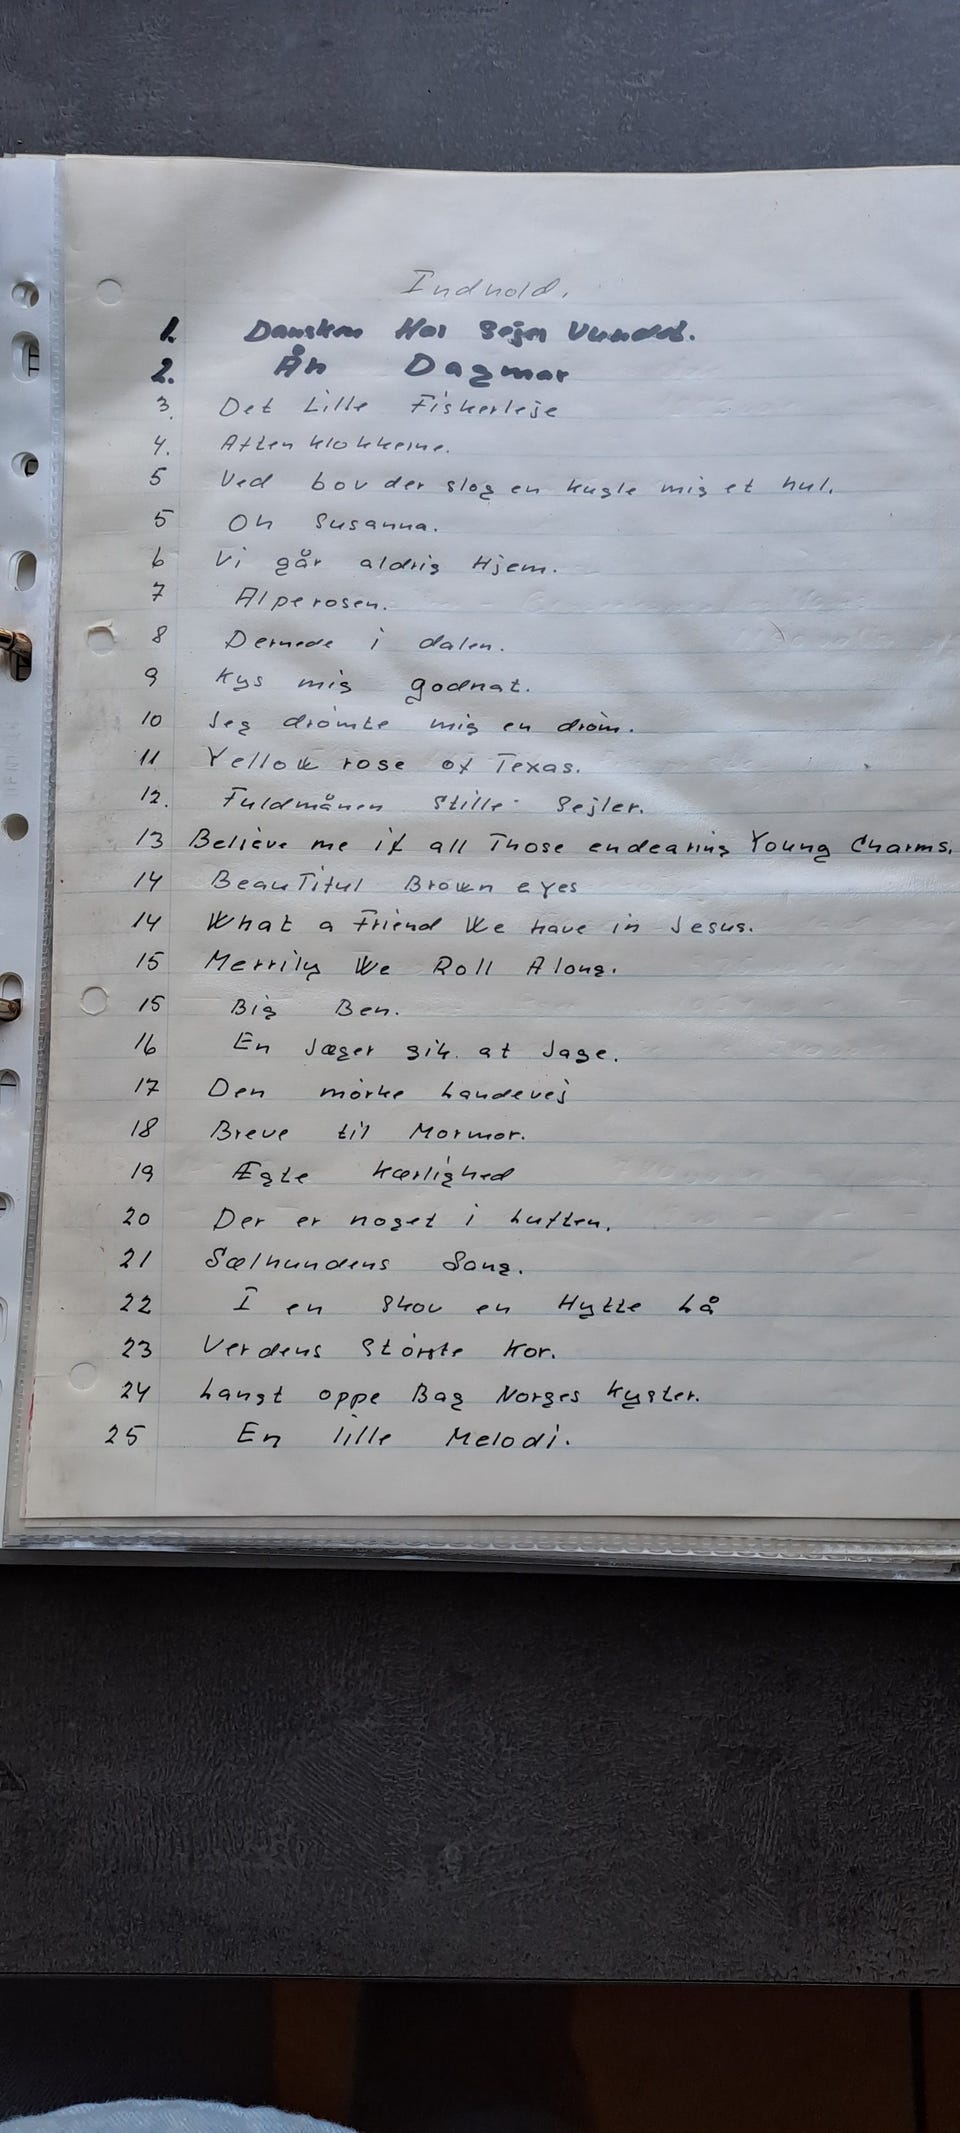 Indhold.
1. Dansken Har Sejer Vundet.
2. Åh Dagmar
3. Det Lille Fiskerleje
4. Aftenklokkerne.
5 Ved bov der slog en kugle mig et hul.
5 Oh Susanna.
6 Vi går aldrig Hjem.
7 Alperosen.
8 Dernede i dalen.
9 Kys mig godnat.
10 Jeg drömte mig en dröm.
11 Yellow rose of Texas.
12. Fuldmånen Stille Sejler.
13 Believe me if all Those endearing Young Charms.
14 BeauTiful Brown eyes
14 What a Friend We have in Jesus.
15 Merrily We Roll Along.
15 Big Ben.
16 En Jæger gik at Jage.
17 Den mörke Landevej
18 Breve til Mormor.
19 Ægte Kærlighed
20 Der er noget i Luften.
21 Sælhundens Sang.
22 I en Skov en Hytte Lå
23 Verdens Störste Kor.
24 Langt oppe Bag Norges Kyster.
25 En lille Melodi.